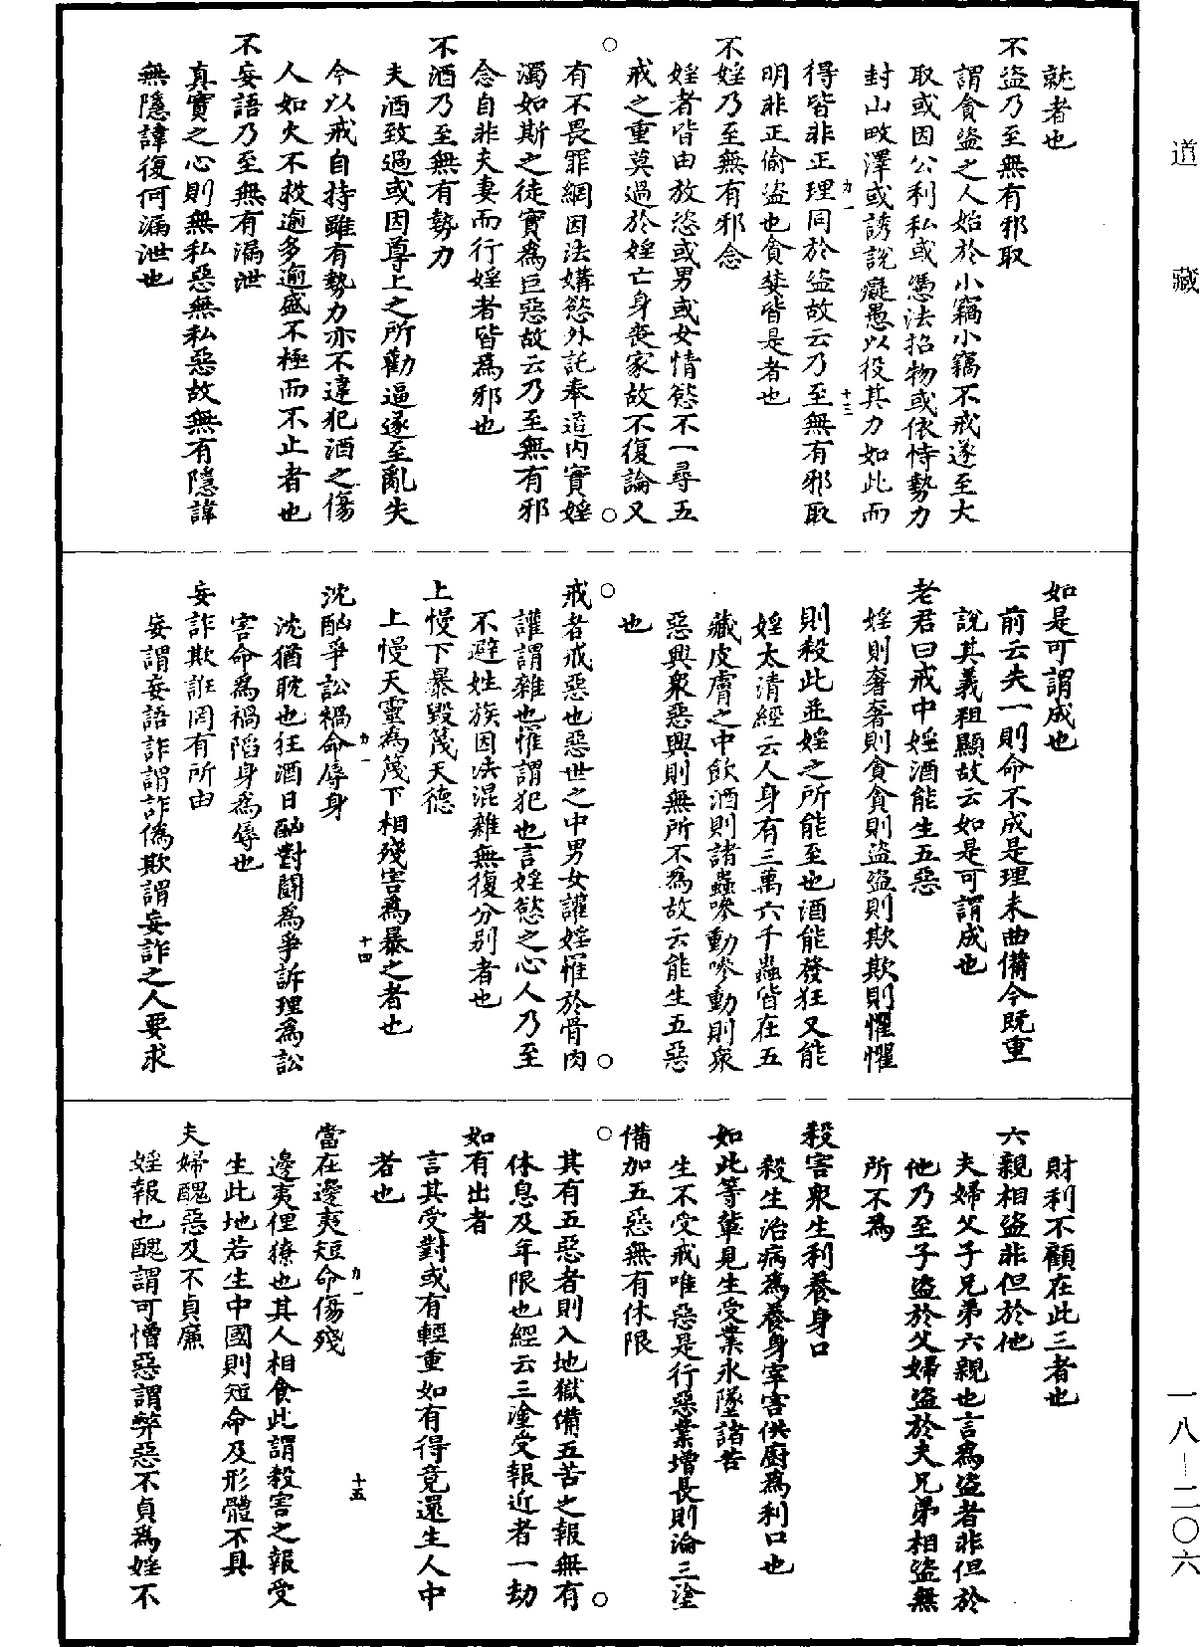 道藏
就者也
不盜乃至無有邪取
謂貪盜之人始於小竊小竊不戒遂至大
取或因公利私或憑法招物或依恃勢力
封山畋澤或誘說癡愚以役其力如此而
得皆非正理同於盜故云乃至無有邪取
明非正偷盜也貪婪皆是者也
不婬乃至無有邪念
婬者皆由放恣或男或女情慾不一尋五
戒之重莫過於婬亡身喪家故不復論又
有不畏罪網因法媾慾外託奉道內實婬
濁如斯之徒實為巨惡故云乃至無有邪
念自非夫妻而行婬者皆為邪也
不酒乃至無有勢力
夫酒致過或因尊上之所勸逼遂至亂失
今以戒自持雖有勢力亦不違犯酒之傷
人如火不救逾多逾盛不極而不止者也
不妄語乃至無有漏泄
真實之心則無私惡無私惡故無有隱諱
無隱諱復何漏泄也
力一
十三
如是可謂成也
前云失一則命不成是理未曲備今既重
說其義粗顯故云如是可謂成也
老君曰戒中婬酒能生五惡
婬則奢奢則貪貪則盜盜則欺欺則懼懼
則殺此並婬之所能至也酒能發狂又能
婬太清經云人身有三萬六千蟲皆在五
藏皮膚之中飲酒則諸蟲嘇動嘇動則衆
惡興衆惡興則無所不為故云能生五惡
也
戒者戒惡也惡世之中男女讙婬罹於骨肉
讙謂雜也罹謂犯也言婬慾之心人乃至
不避姓族因決混雜無復分別者也
上慢下暴毀蔑天德
上慢天靈為蔑下相殘害為暴之者也
沈酗爭訟禍命辱身
沈猶耽也狂酒日酗對鬬為爭訴理為訟
害命為禍陷身為辱也
妄詐欺誑罔有所由
妄謂妄語詐謂詐偽欺謂妄詐之人要求
力一
十四
財利不顧在此三者也
六親相盜非但於他
夫婦父子兄弟六親也言為盜者非但於
他乃至子盜於父婦盜於夫兄弟相盜無
所不為
殺害衆生利養身口
殺生治病為養身宰害供廚為利口也
如此等輩見生受業永墜諸苦
生不受戒唯惡是行惡業增長則淪三塗
備加五惡無有休限
其有五惡者則入地獄備五苦之報無有
休息及年限也經云三塗受報近者一劫
如有出者
言其受對或有輕重如有得竟還生人中
者也
當在邊夷短命傷殘
邊夷俚獠也其人相食此謂殺害之報受
生此地若生中國則短命及形體不具
夫婦醜惡及不貞廉
婬報也醜謂可憎惡謂弊惡不貞為婬不
力一
十五
一八—二〇六